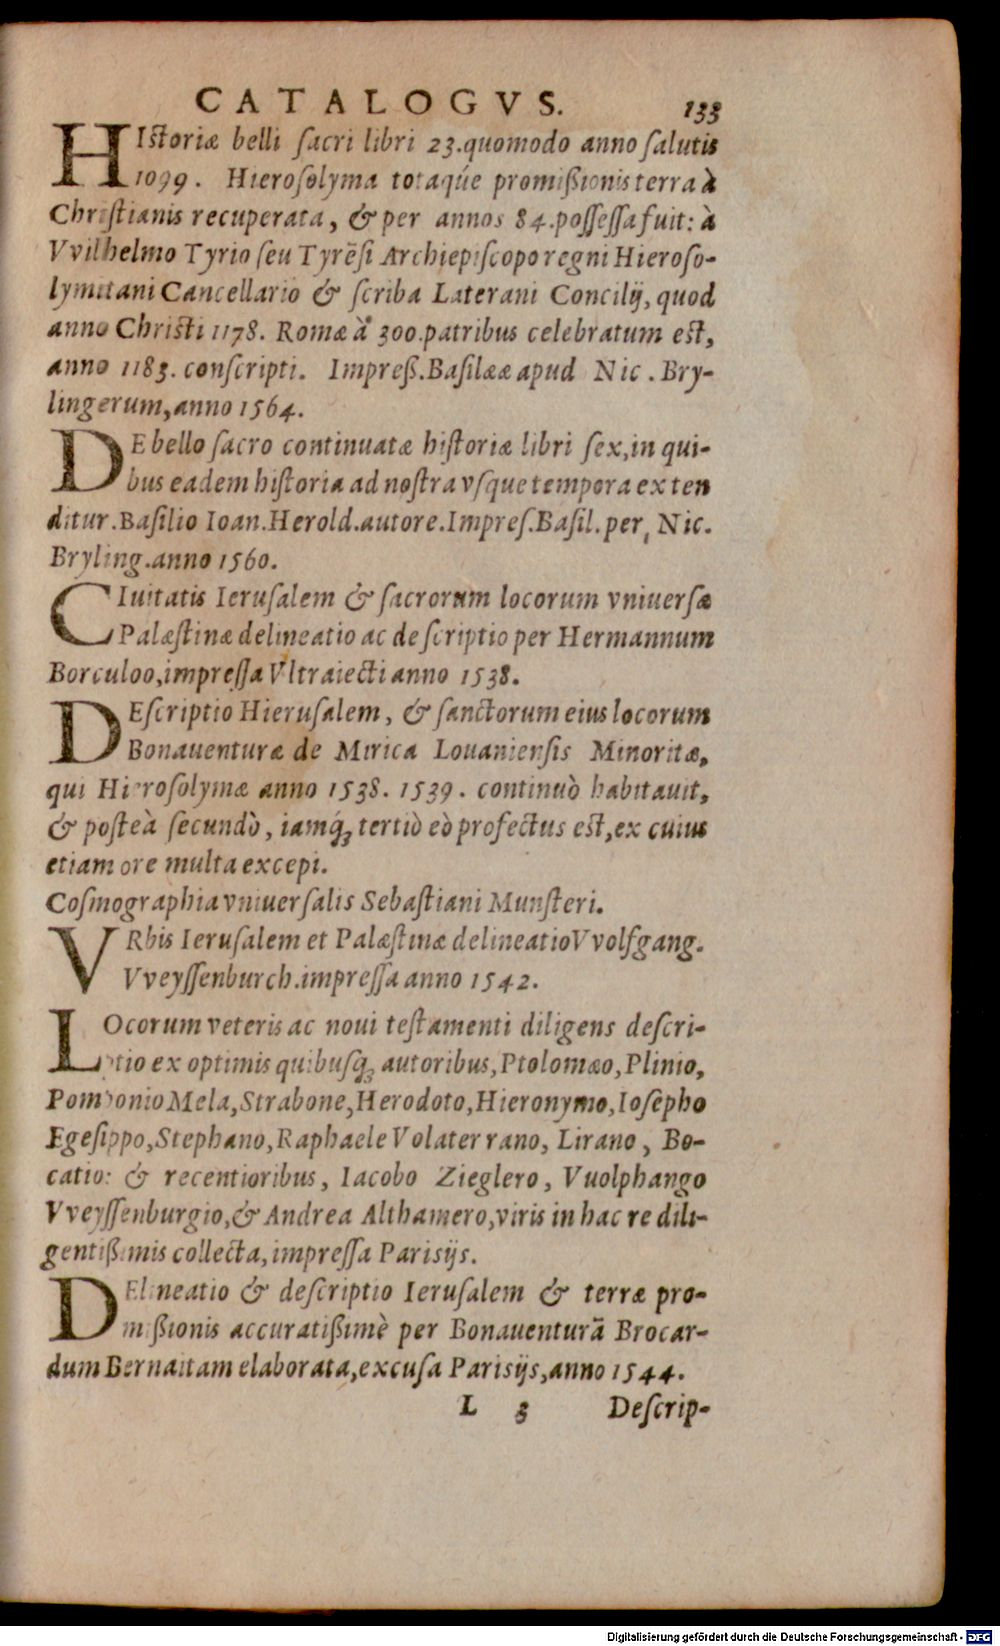 CATALOGVS. 133
HIſtoriæ belli ſacri libri 23.quomodo anno ſalutis
1099. Hieroſolyma totaqúe promißionis terra à
Chriſtianis recuperata, & per annos 84.poſſeſſa fuit: à
Vvilhelmo Tyrio ſeu Tyrēſi Archiepiſcopo regni Hieroſo-
lymitani Cancellario & ſcriba Laterani Concilij, quod
anno Chriſti 1178. Romæ à 300.patribus celebratum eſt,
anno 1183. conſcripti. Impreß.Baſilææ apud Nic. Bry-
lingerum, anno 1564.
DE bello ſacro continuatæ hiſtoriæ libri ſex, in qui-
bus eadem hiſtoria ad noſtra vſque tempora exten
ditur.Baſilio Ioan.Herold.autore.Impreſ.Baſil.per Nic.
Bryling.anno 1560.
CIuitatis Ieruſalem & ſacrorum locorum vniuerſæ
Palæſtinæ delineatio ac deſcriptio per Hermannum
Borculoo, impreſſa Vltraiecti anno 1538.
DEſcriptio Hieruſalem, & ſanctorum eius locorum
Bonauenturæ de Mirica Louanienſis Minoritæ,
qui Hieroſolymæ anno 1538. 1539. continuò habitauit,
& poſteà ſecundò, iamq́ꝫ tertiò eò profectus eſt, ex cuius
etiam ore multa excepi.
Coſmographia vniuerſalis Sebaſtiani Munſteri.
VRbis Ieruſalem et Palæſtinæ delineatio Vvolfgang.
Vveyſſenburch.impreſſa anno 1542.
LOcorum veteris ac noui teſtamenti diligens deſcri-
ptio ex optimis quibuſqꝫ autoribus, Ptolomæo, Plinio,
Pomponio Mela, Strabone, Herodoto, Hieronymo, Ioſepho
Egeſippo, Stephano, Raphaele Volaterrano, Lirano, Bo-
catio: & recentioribus, Iacobo Zieglero, Vuolphango
Vveyſſenburgio, & Andrea Althamero, viris in hac re dili-
gentißimis collecta, impreſſa Pariſijs.
DElineatio & deſcriptio Ieruſalem & terræ pro-
mißionis accuratißimè per Bonauenturā Brocar-
dum Bernaitam elaborata, excuſa Pariſijs, anno 1544.
L 3 Deſcrip-
Digitalisierung gefördert durch die Deutsche Forschungsgemeinschaft - DFG